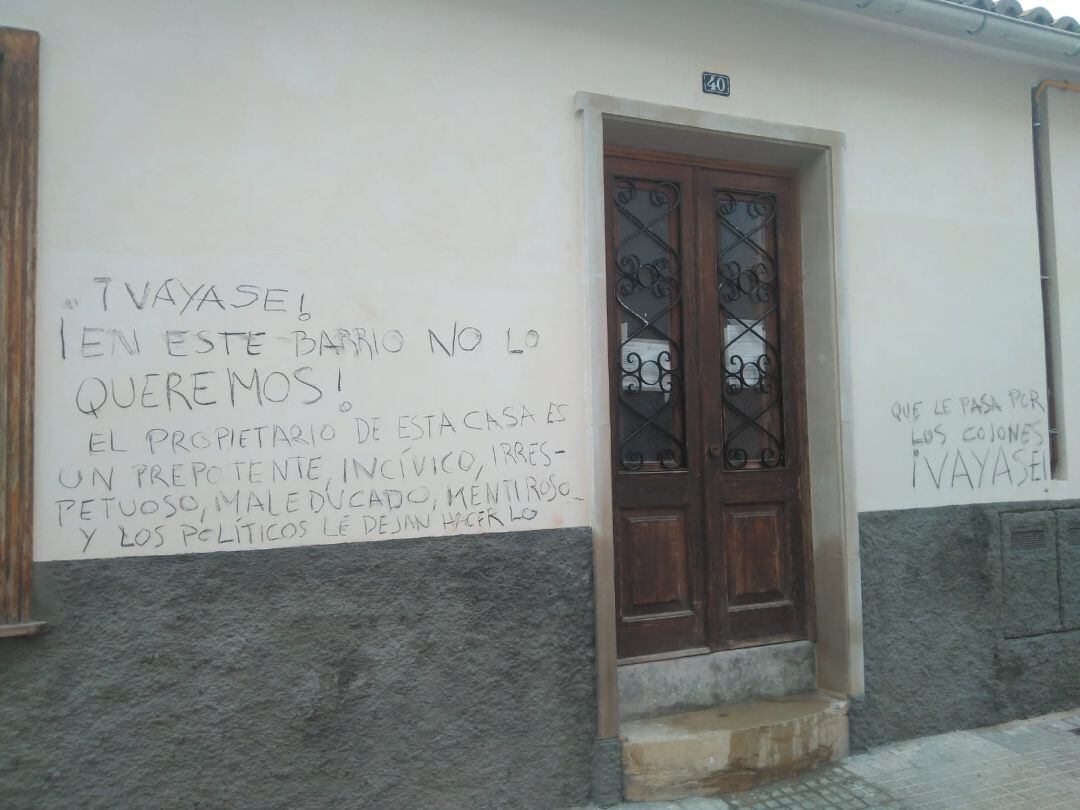 40
¡VAYASE!
¡EN ESTE BARRIO NO LO
QUEREMOS!
EL PROPIETARIO DE ESTA CASA ES
UN PREPOTENTE, INCÍVICO, IRRES-
PETUOSO, MALEDUCADO, MENTIROSO
Y LOS POLÍTICOS LE DEJAN HACER LO
QUE LE PASA POR
LOS COJONES
¡VAYASE!